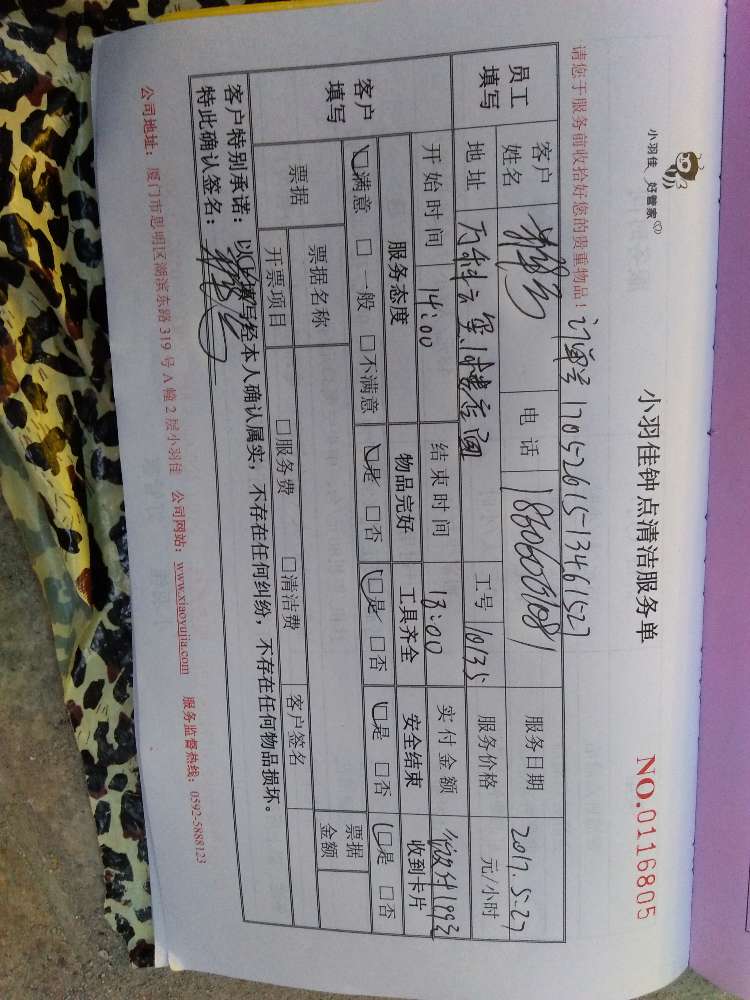 小羽佳 好管家
小羽佳钟点清洁服务单
NO.0116805
请您于服务前收拾好您的贵重物品！
17052615-13461527
员工填写
客户姓名
电话
服务日期 2017.5-27
地址
工号 10135
服务价格 元/小时
客户填写
开始时间 14:00 结束时间 18:00 实付金额
服务态度 物品完好 工具齐全 安全结束 收到卡片
☑满意 □一般 □不满意 ☑是 □否 ☑是 □否 ☑是 □否 ☑是 □否
票据 票据名称 客户签名 票据金额
开票项目 □服务费 □清洁费
客户特别承诺：以上填写经本人确认属实，不存在任何纠纷，不存在任何物品损坏。
特此确认签名：
公司地址：厦门市思明区湖滨东路319号A幢2层小羽佳 公司网站：www.xiaoyujia.com 服务监督热线：0592-5888123